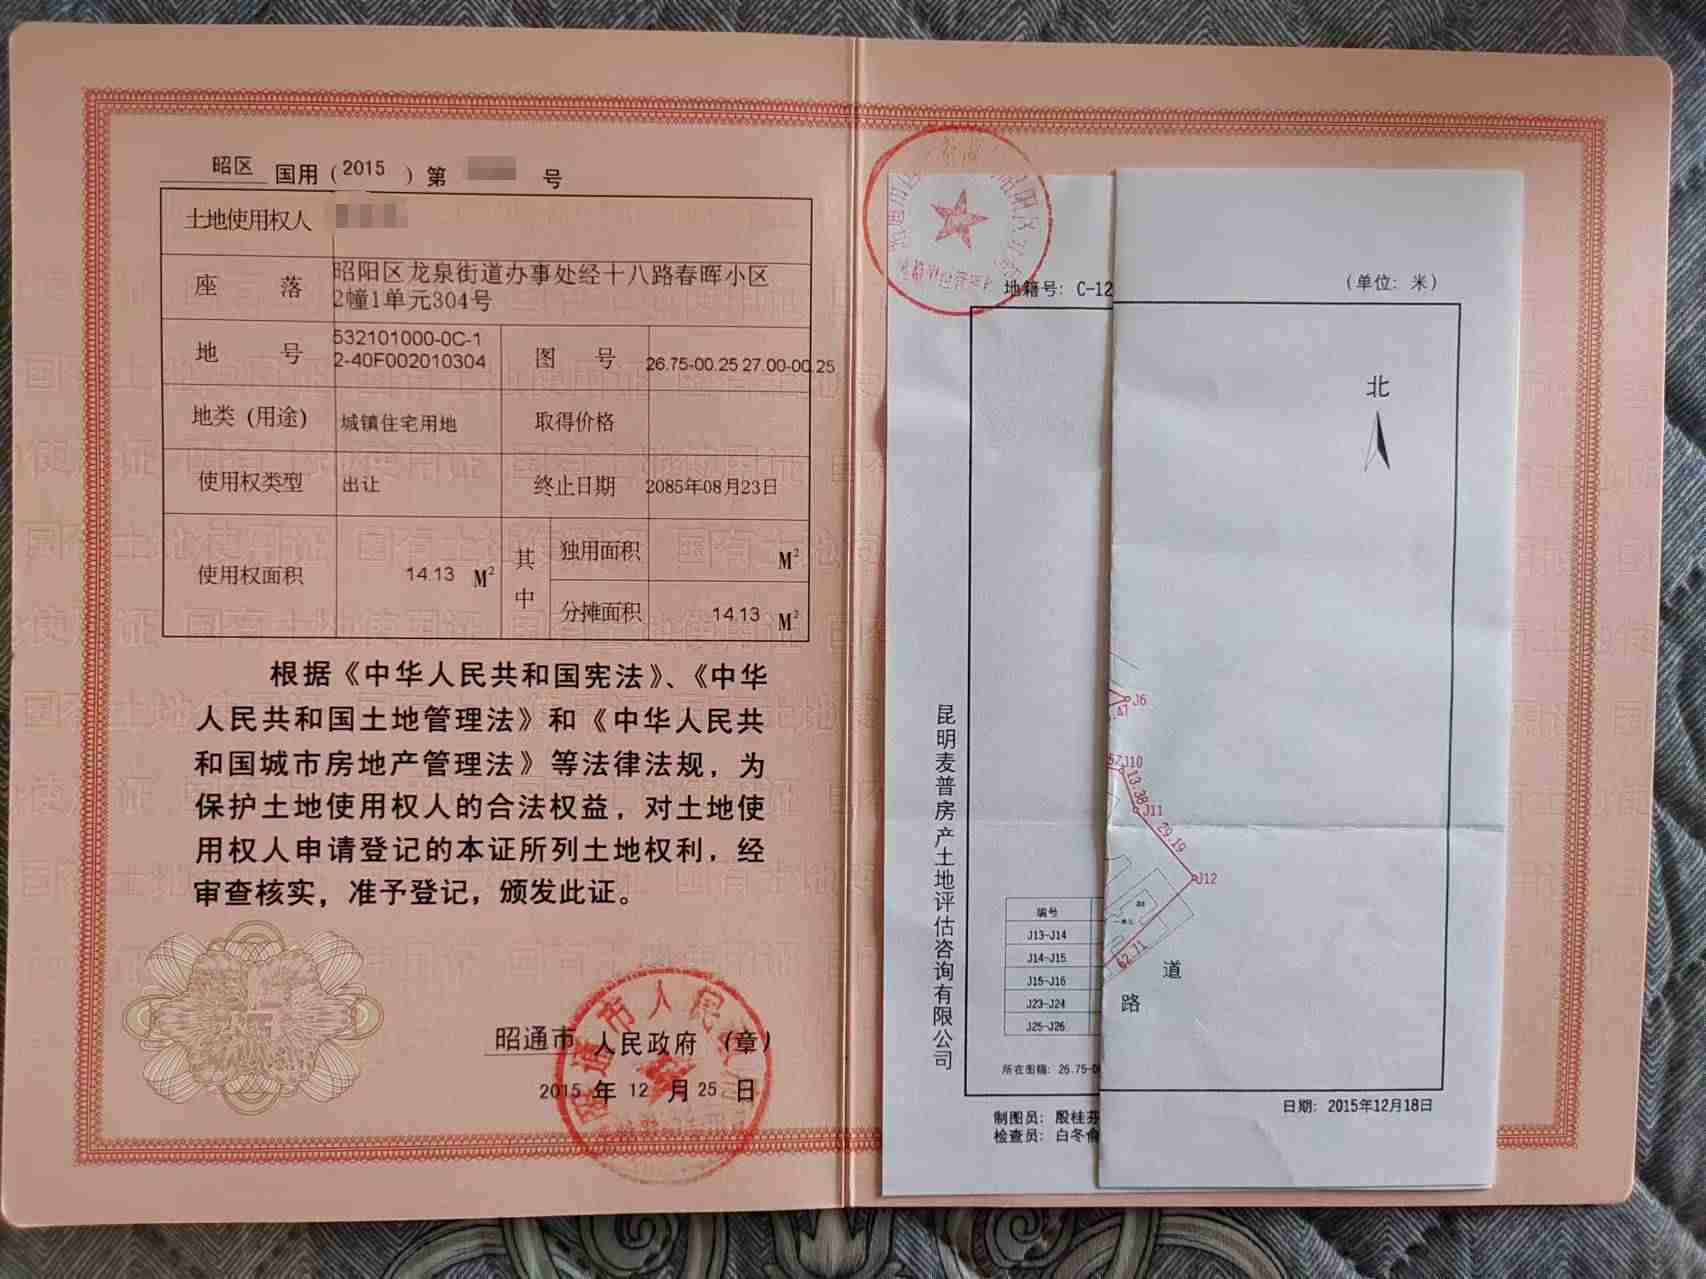 昭区 国用(2015)第 号
土地使用权人
座落 昭阳区龙泉街道办事处经十八路春晖小区
2幢1单元304号
地号 532101000-0C-1
2-40F002010304
图号 26.75-00.25 27.00-00.25
地类(用途) 城镇住宅用地 取得价格
使用权类型 出让 终止日期 2085年08月23日
使用权面积 14.13 M²
其中
独用面积 M²
分摊面积 14.13 M²
根据《中华人民共和国宪法》、《中华
人民共和国土地管理法》和《中华人民共
和国城市房地产管理法》等法律法规，为
保护土地使用权人的合法权益，对土地使
用权人申请登记的本证所列土地权利，经
审查核实，准予登记，颁发此证。
昭通市 人民政府 (章)
2015 年 12 月 25 日
地籍号: C-12
(单位: 米)
北
J6
J10
13.38
J11
29.19
J12
62.71
道
路
昆明麦普房产土地评估咨询有限公司
编号
J13-J14
J14-J15
J15-J16
J23-J24
J25-J26
所在图幅: 26.75-0
日期: 2015年12月18日
制图员: 殷桂芬
检查员: 白冬